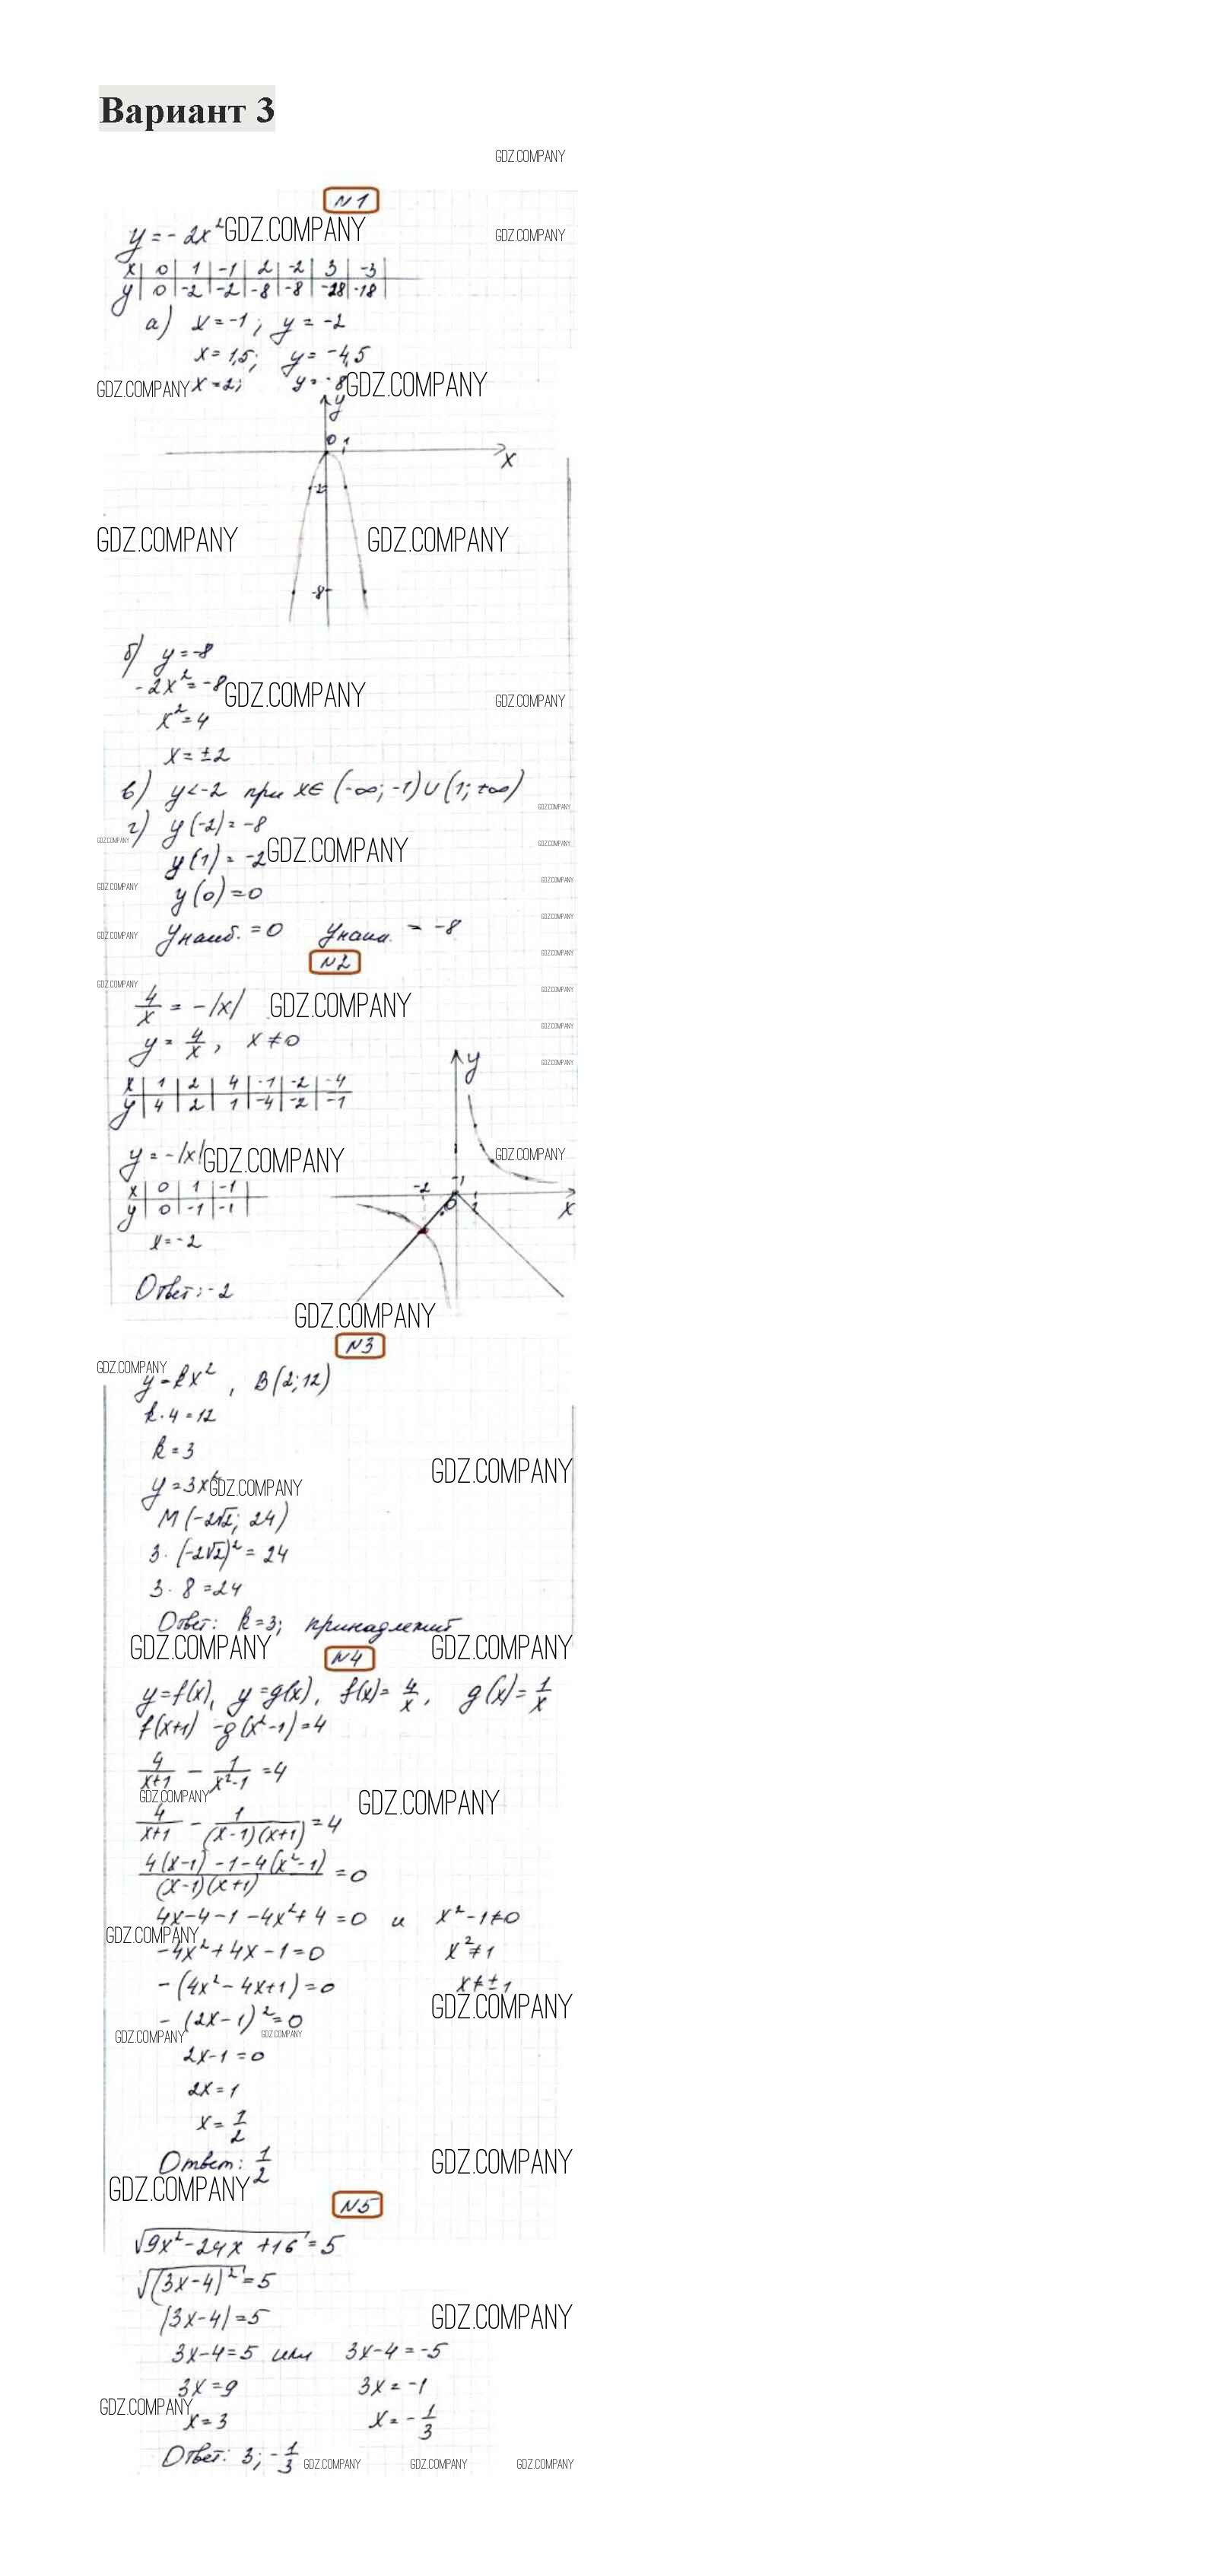 Вариант 3
GDZ.COMPANY
N1
y = -2x² GDZ.COMPANY GDZ.COMPANY
x | 0 | 1 | -1 | 2 | -2 | 3 | -3
y | 0 | -2 | -2 | -8 | -8 | -28 | -18
а) x = -1; y = -2
x = 1,5; y = -4,5
GDZ.COMPANY x = 2; y = -8 GDZ.COMPANY
y
0 1
x
-2
GDZ.COMPANY GDZ.COMPANY
-8
б) y = -8
-2x² = -8 GDZ.COMPANY GDZ.COMPANY
x² = 4
x = ±2
в) y < -2 при x ∈ (-∞; -1) ∪ (1; +∞)
GDZ.COMPANY
г) y(-2) = -8
GDZ.COMPANY GDZ.COMPANY
y(1) = -2 GDZ.COMPANY
GDZ.COMPANY GDZ.COMPANY
y(0) = 0
GDZ.COMPANY
GDZ.COMPANY yнаиб. = 0 yнаим. = -8
N2 GDZ.COMPANY
GDZ.COMPANY GDZ.COMPANY
4/x = -|x| GDZ.COMPANY
GDZ.COMPANY
y = 4/x, x ≠ 0
y GDZ.COMPANY
x | 1 | 2 | 4 | -1 | -2 | -4
y | 4 | 2 | 1 | -4 | -2 | -1
y = -|x| GDZ.COMPANY GDZ.COMPANY
x | 0 | 1 | -1
y | 0 | -1 | -1
-2 1 0 1 x
x = -2
Ответ: -2
GDZ.COMPANY
N3
GDZ.COMPANY
y = kx², B(2; 12)
k · 4 = 12
k = 3
GDZ.COMPANY
y = 3x² GDZ.COMPANY
M(-2√2; 24)
3 · (-2√2)² = 24
3 · 8 = 24
Ответ: k = 3; принадлежит
GDZ.COMPANY GDZ.COMPANY
N4
y = f(x), y = g(x), f(x) = 4/x, g(x) = 1/x
f(x+1) - g(x²-1) = 4
4/(x+1) - 1/(x²-1) = 4
GDZ.COMPANY GDZ.COMPANY
4/(x+1) - 1/((x-1)(x+1)) = 4
(4(x-1) - 1 - 4(x²-1))/((x-1)(x+1)) = 0
4x - 4 - 1 - 4x² + 4 = 0 и x² - 1 ≠ 0
GDZ.COMPANY
-4x² + 4x - 1 = 0 x² ≠ 1
-(4x² - 4x + 1) = 0 x ≠ ±1
GDZ.COMPANY
-(2x - 1)² = 0
GDZ.COMPANY GDZ.COMPANY
2x - 1 = 0
2x = 1
x = 1/2
Ответ: 1/2 GDZ.COMPANY
GDZ.COMPANY
N5
√(9x² - 24x + 16) = 5
√((3x - 4)²) = 5
|3x - 4| = 5 GDZ.COMPANY
3x - 4 = 5 или 3x - 4 = -5
3x = 9 3x = -1
GDZ.COMPANY
x = 3 x = -1/3
Ответ: 3; -1/3 GDZ.COMPANY GDZ.COMPANY GDZ.COMPANY